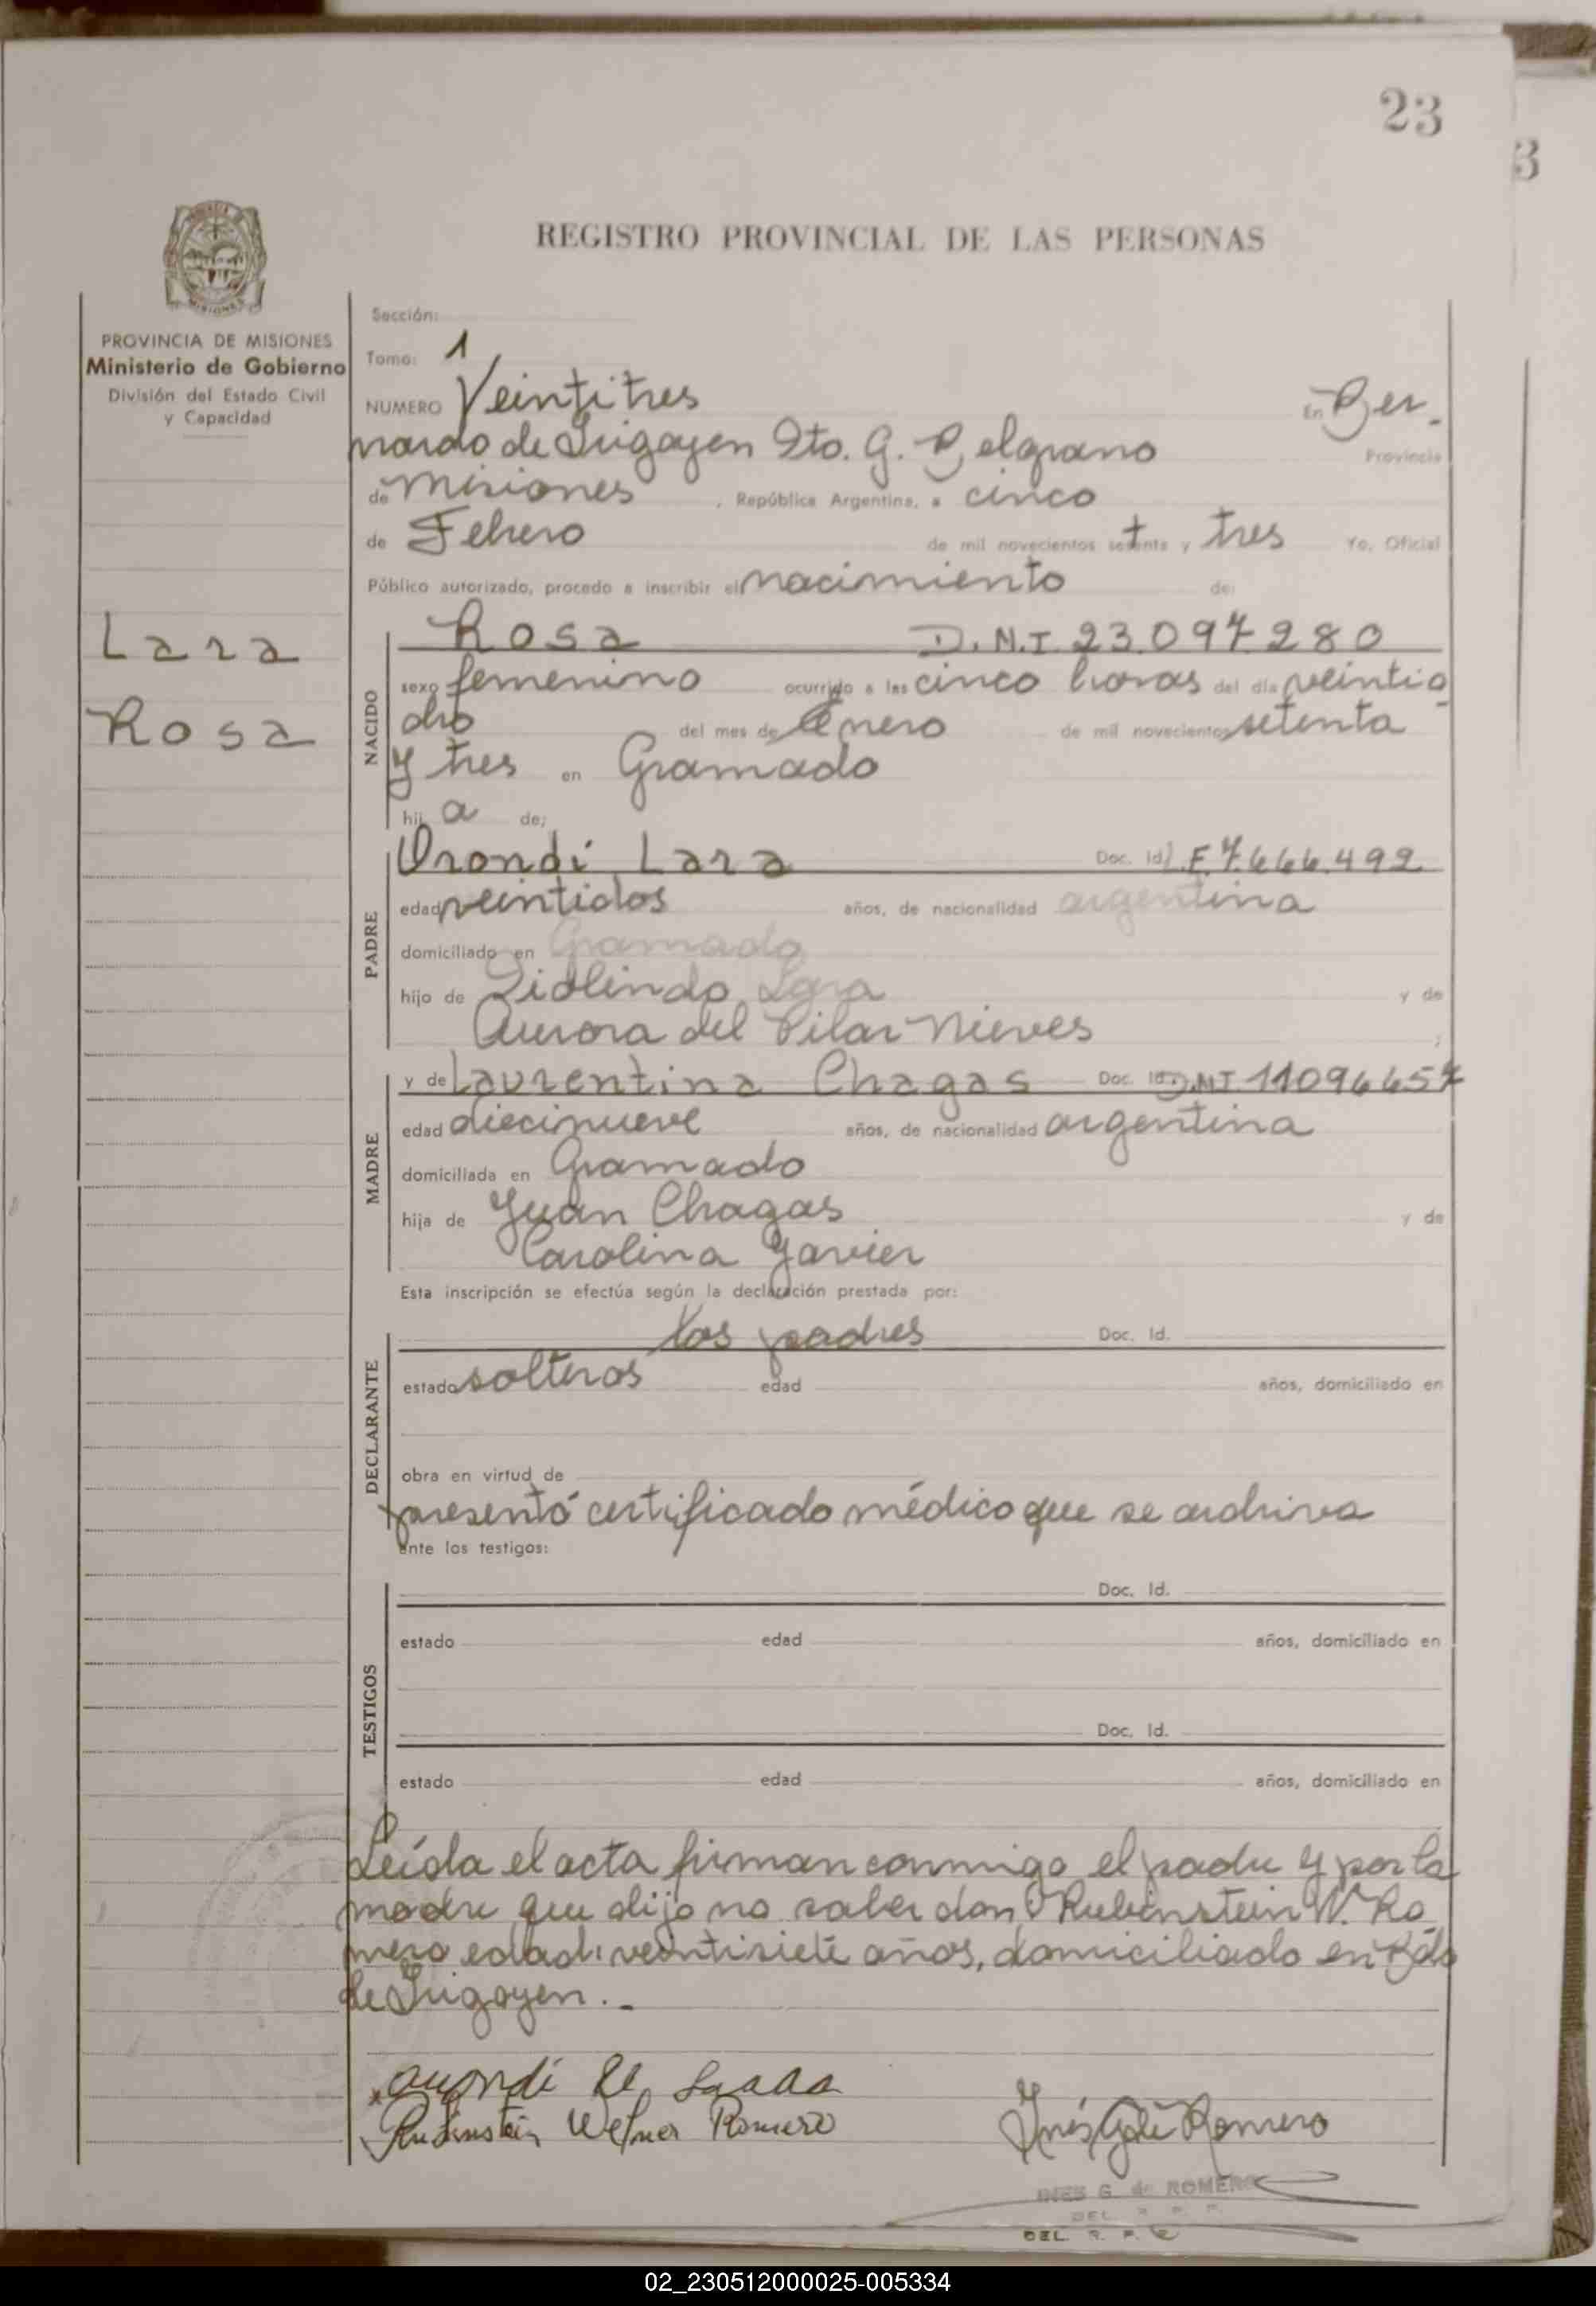 23
3
REGISTRO PROVINCIAL DE LAS PERSONAS
PROVINCIA DE MISIONES
Ministerio de Gobierno
División del Estado Civil
y Capacidad
Lara
Rosa
Sección:
Tomo: 1
NUMERO Veintitres En Ber-
nardo de Irigoyen Dto. G. Belgrano Provincia
de Misiones, República Argentina, a cinco
de Febrero de mil novecientos setenta y tres Yo, Oficial
Público autorizado, procedo a inscribir el nacimiento de:
NACIDO
Rosa D.N.I. 23.097.280
sexo femenino ocurrido a las cinco horas del día veintio-
cho del mes de Enero de mil novecientos setenta
y tres en Gramado
hij a de;
PADRE
Orondi Lara Doc. Id. L.E. 7.666.492
edad veintidos años, de nacionalidad argentina
domiciliado en Gramado
hijo de Lara y de
Aurora del Pilar Nieves ;
MADRE
y de Laurentina Chagas Doc. Id. D.N.I. 11096657
edad diecinueve años, de nacionalidad argentina
domiciliada en Gramado
hija de Juan Chagas y de
Carolina Javier
Esta inscripción se efectúa según la declaración prestada por:
DECLARANTE
los padres Doc. Id.
estado solteros edad años, domiciliado en
obra en virtud de
presentó certificado médico que se archiva
ante los testigos:
TESTIGOS
Doc. Id.
estado edad años, domiciliado en
Doc. Id.
estado edad años, domiciliado en
Leída el acta firman conmigo el padre y por la
madre que dijo no saber don Rubinstein W. Ro
mero edad: veintisiete años, domiciliado en Bdo
de Irigoyen.-
Rubinstein Romero
Inés G. de Romero
INES G. de ROMERO
DEL R. P.
02_230512000025-005334